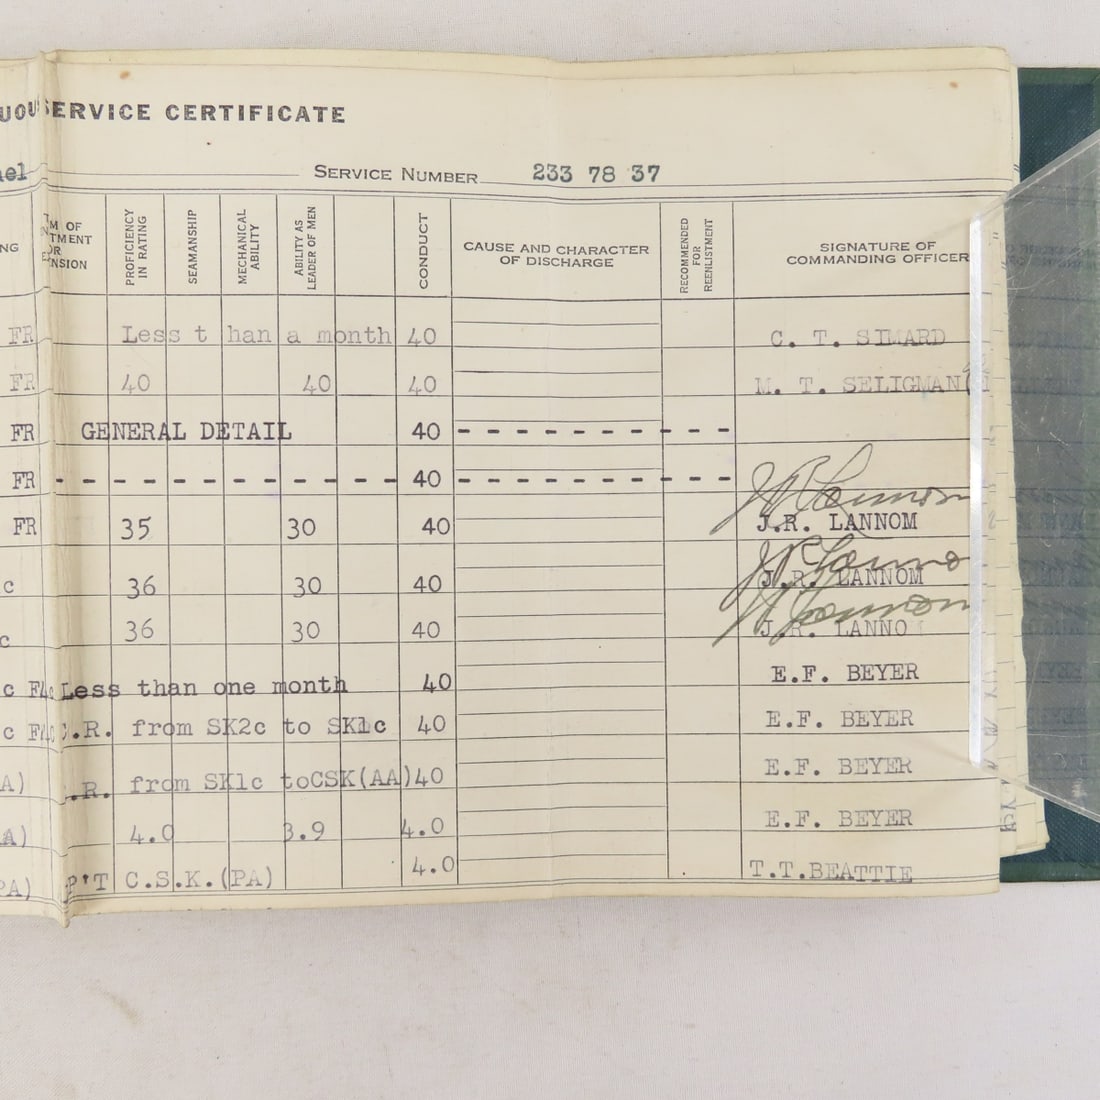 SERVICE CERTIFICATE
SERVICE NUMBER 233 78 37
PROFICIENCY IN RATING
SEAMANSHIP
MECHANICAL ABILITY
ABILITY AS LEADER OF MEN
CONDUCT
CAUSE AND CHARACTER
OF DISCHARGE
RECOMMENDED FOR REENLISTMENT
SIGNATURE OF
COMMANDING OFFICER
FR Less t han a month 40 C. T. SIMARD
FR 40 40 40 M. T. SELIGMAN
FR GENERAL DETAIL 40 - - - - - - - - - -
FR - - - - - - - - - - - - 40 - - - - - - - - - -
FR 35 30 40 J.R. LANNOM
c 36 30 40 J.R. LANNOM
c 36 30 40 J.R. LANNO
c Less than one month 40 E.F. BEYER
c .R. from SK2c to SK1c 40 E.F. BEYER
A) .R. from SK1c toCSK(AA)40 E.F. BEYER
A) 4.0 3.9 4.0 E.F. BEYER
PA) P'T C.S.K.(PA) 4.0 T.T.BEATTIE